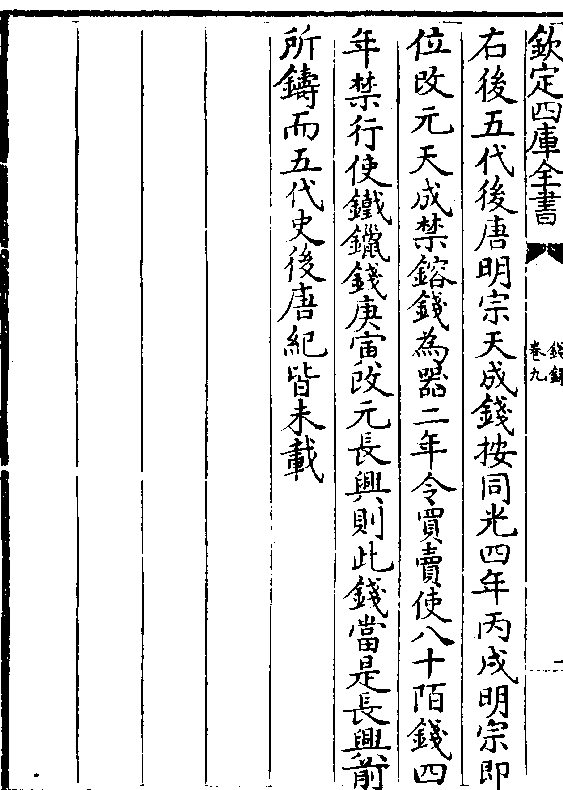 欽定四庫全書
錢録
卷九
右後五代後唐明宗天成錢按同光四年丙戌明宗即
位改元天成禁鎔錢為器二年令買賣使八十陌錢四
年禁行使鐵鑞錢庚寅改元長興則此錢當是長興前
所鑄而五代史後唐紀皆未載